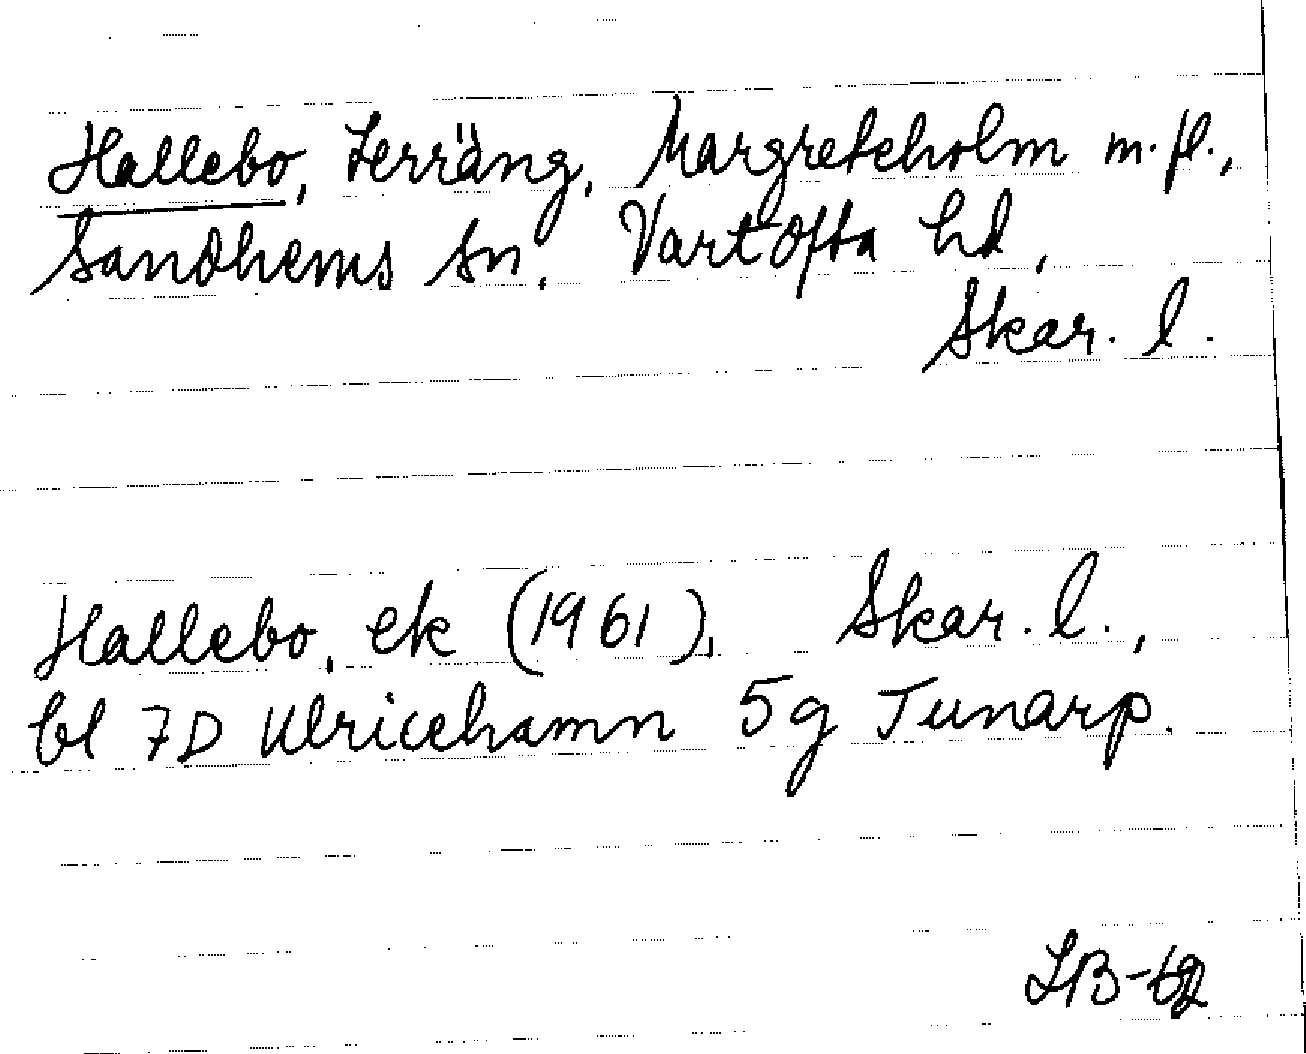 Hallebo, terräng, Margreteholm m.fl.,
Sandhems sn, Vartofta hd,
Skar. l.
Hallebo, ek (1961), Skar. l.,
bl 7D Ulricehamn 5g Tunarp.